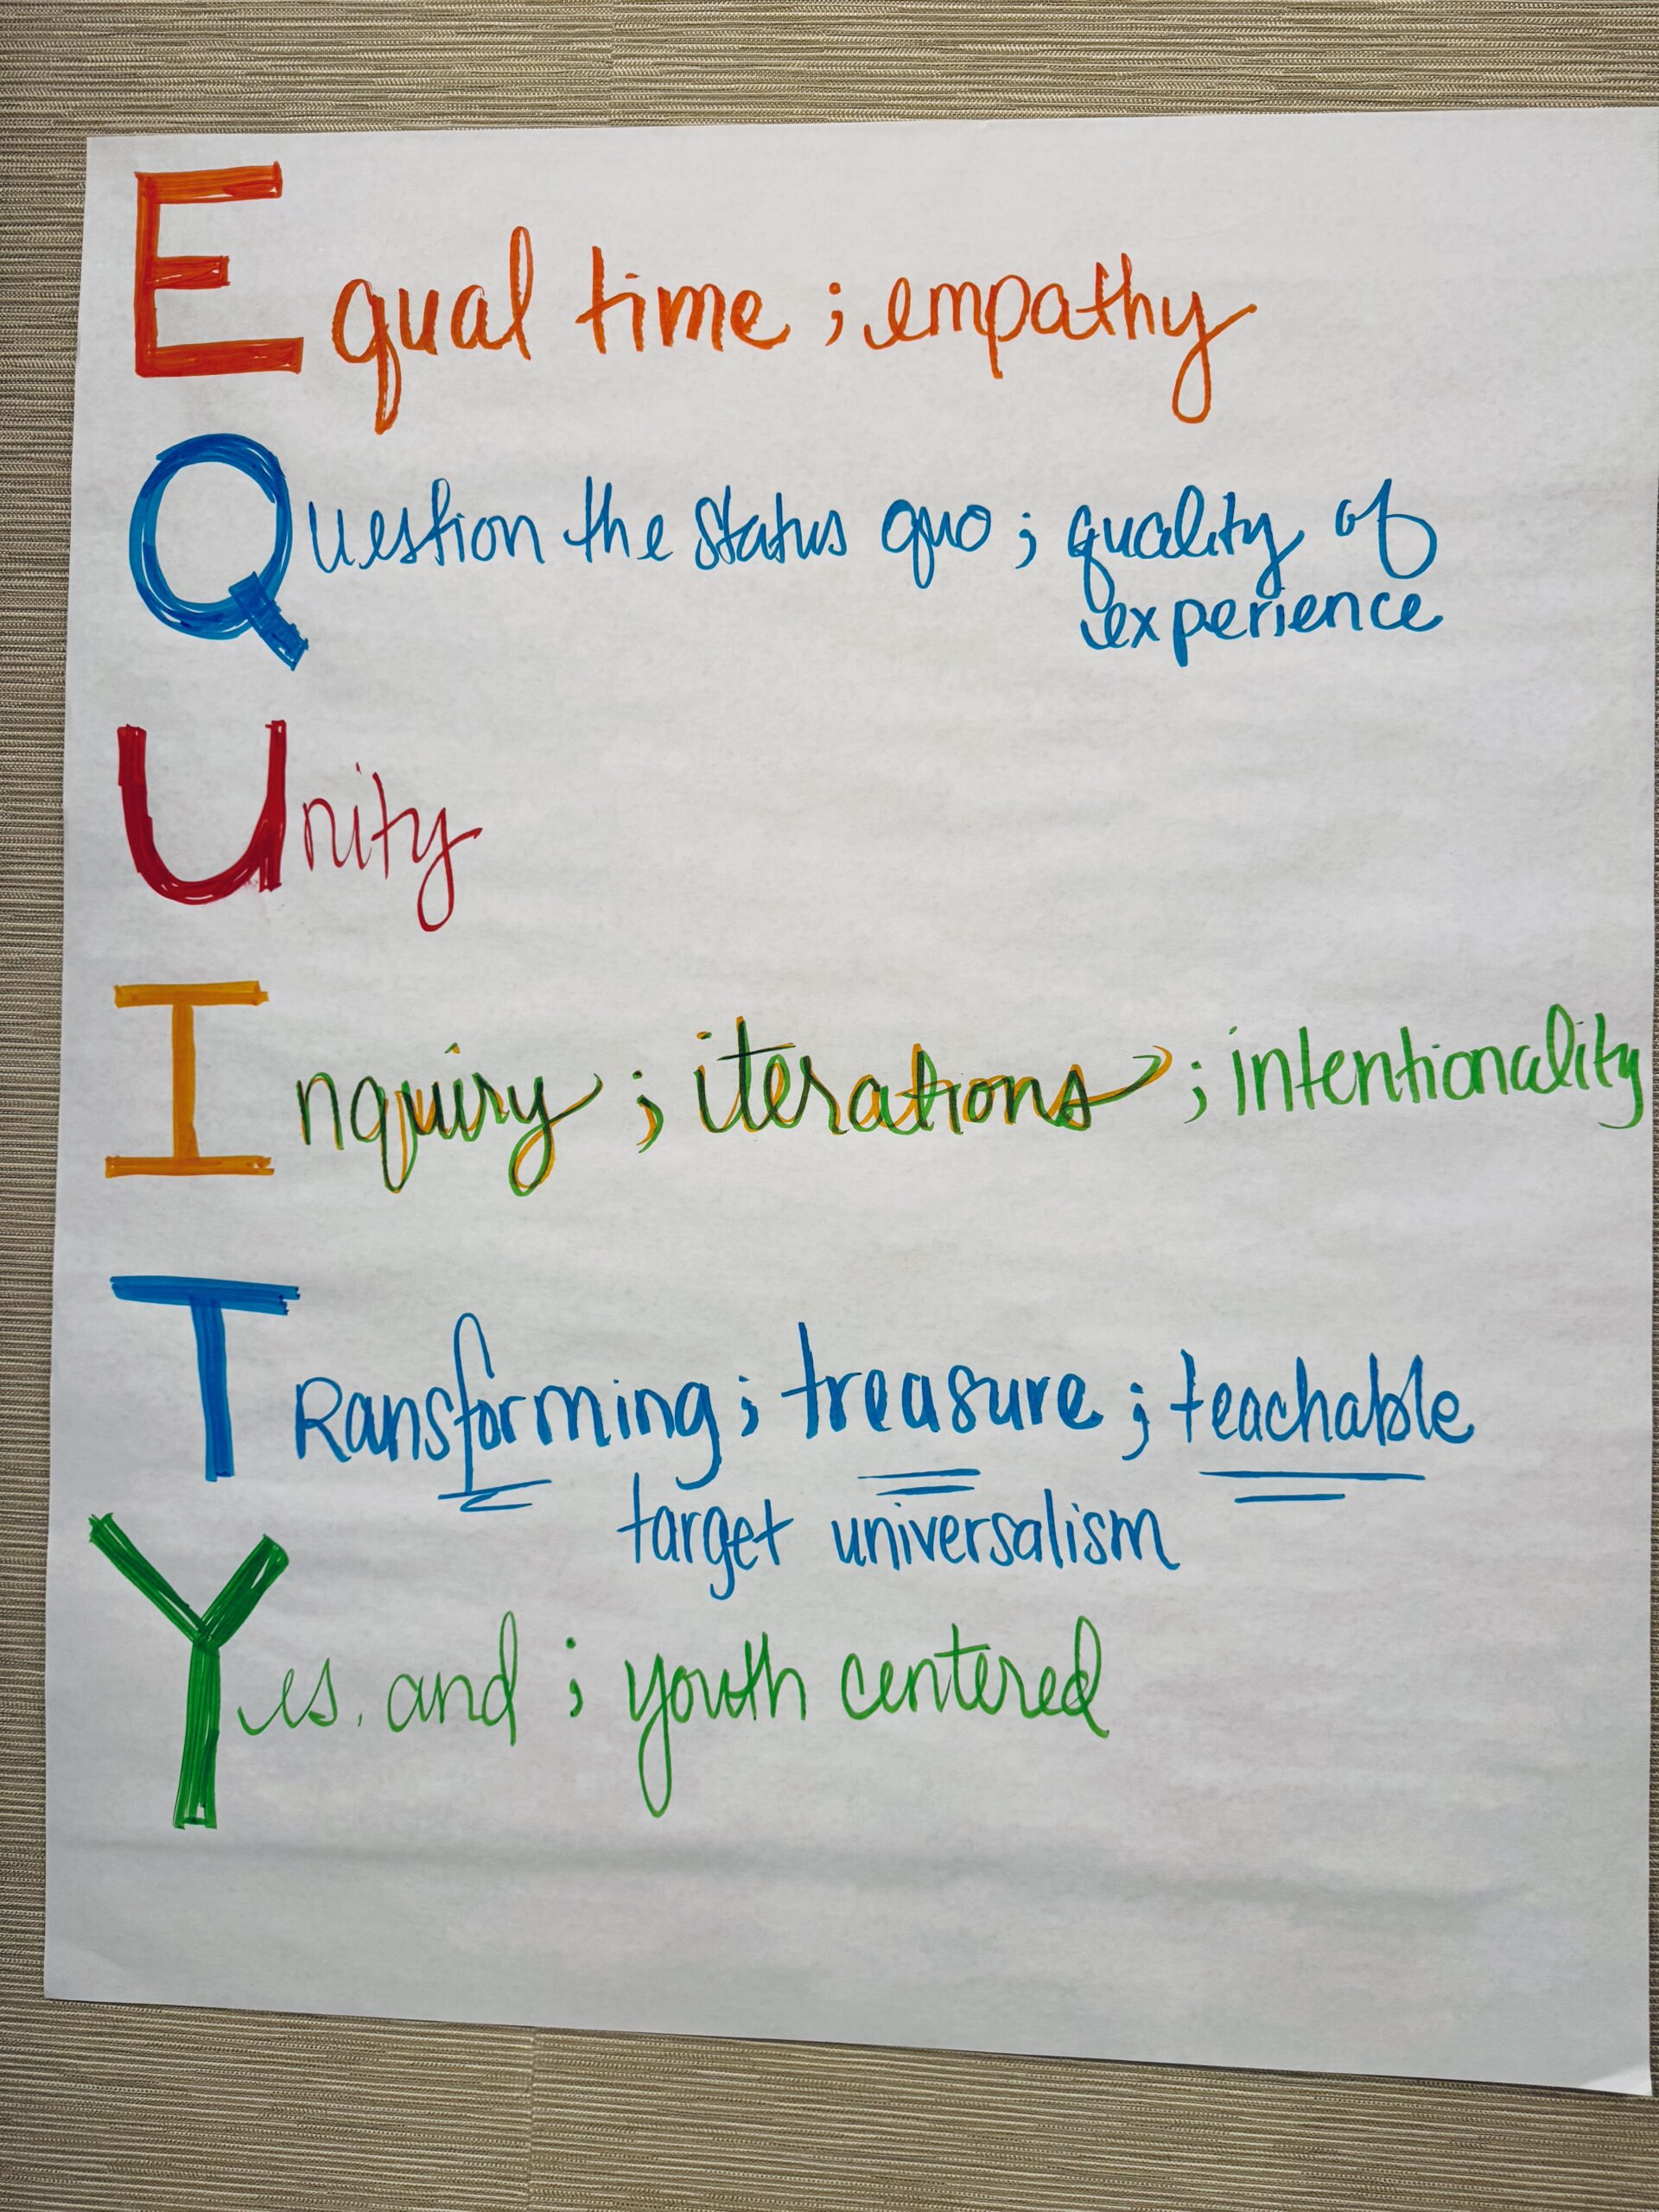 Equal time ; empathy
Question the status quo ; quality of
experience
Unity
Inquiry ; iterations ; intentionality
TRansforming ; treasure ; teachable
target universalism
Yes, and ; youth centered